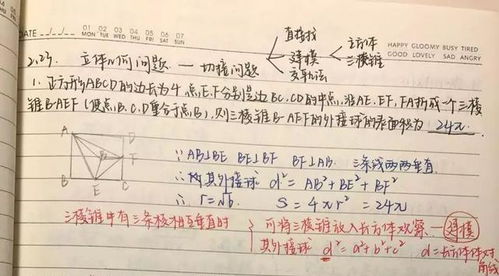 DATE
01 02 03 04 05 06 07
MON TUE WED THU FRI SAT SUN
HAPPY GLOOMY BUSY TIRED
GOOD LOVELY SAD ANGRY
2.23. 立体几何问题 — 切接问题
直接找
建模
长方体
三棱锥
1. 正方形ABCD的边长为4,点E,F分别是边BC,CD的中点,沿AE,EF,FA折成一个三棱
锥B-AEF(使点B,C,D重合于点B),则三棱锥B-AEF的外接球的表面积为 24π
A D
F
B E C
∵ AB⊥BE BE⊥BF BF⊥AB. 三条线两两垂直
∴ 其外接球 d²=AB²+BE²+BF²
∴ r=√6 S=4πr²=24π
三棱锥中有三条棱相互垂直时
可将三棱锥放入长方体观察 — 建模
其外接球 d²=a²+b²+c² d=长方体体对
角线